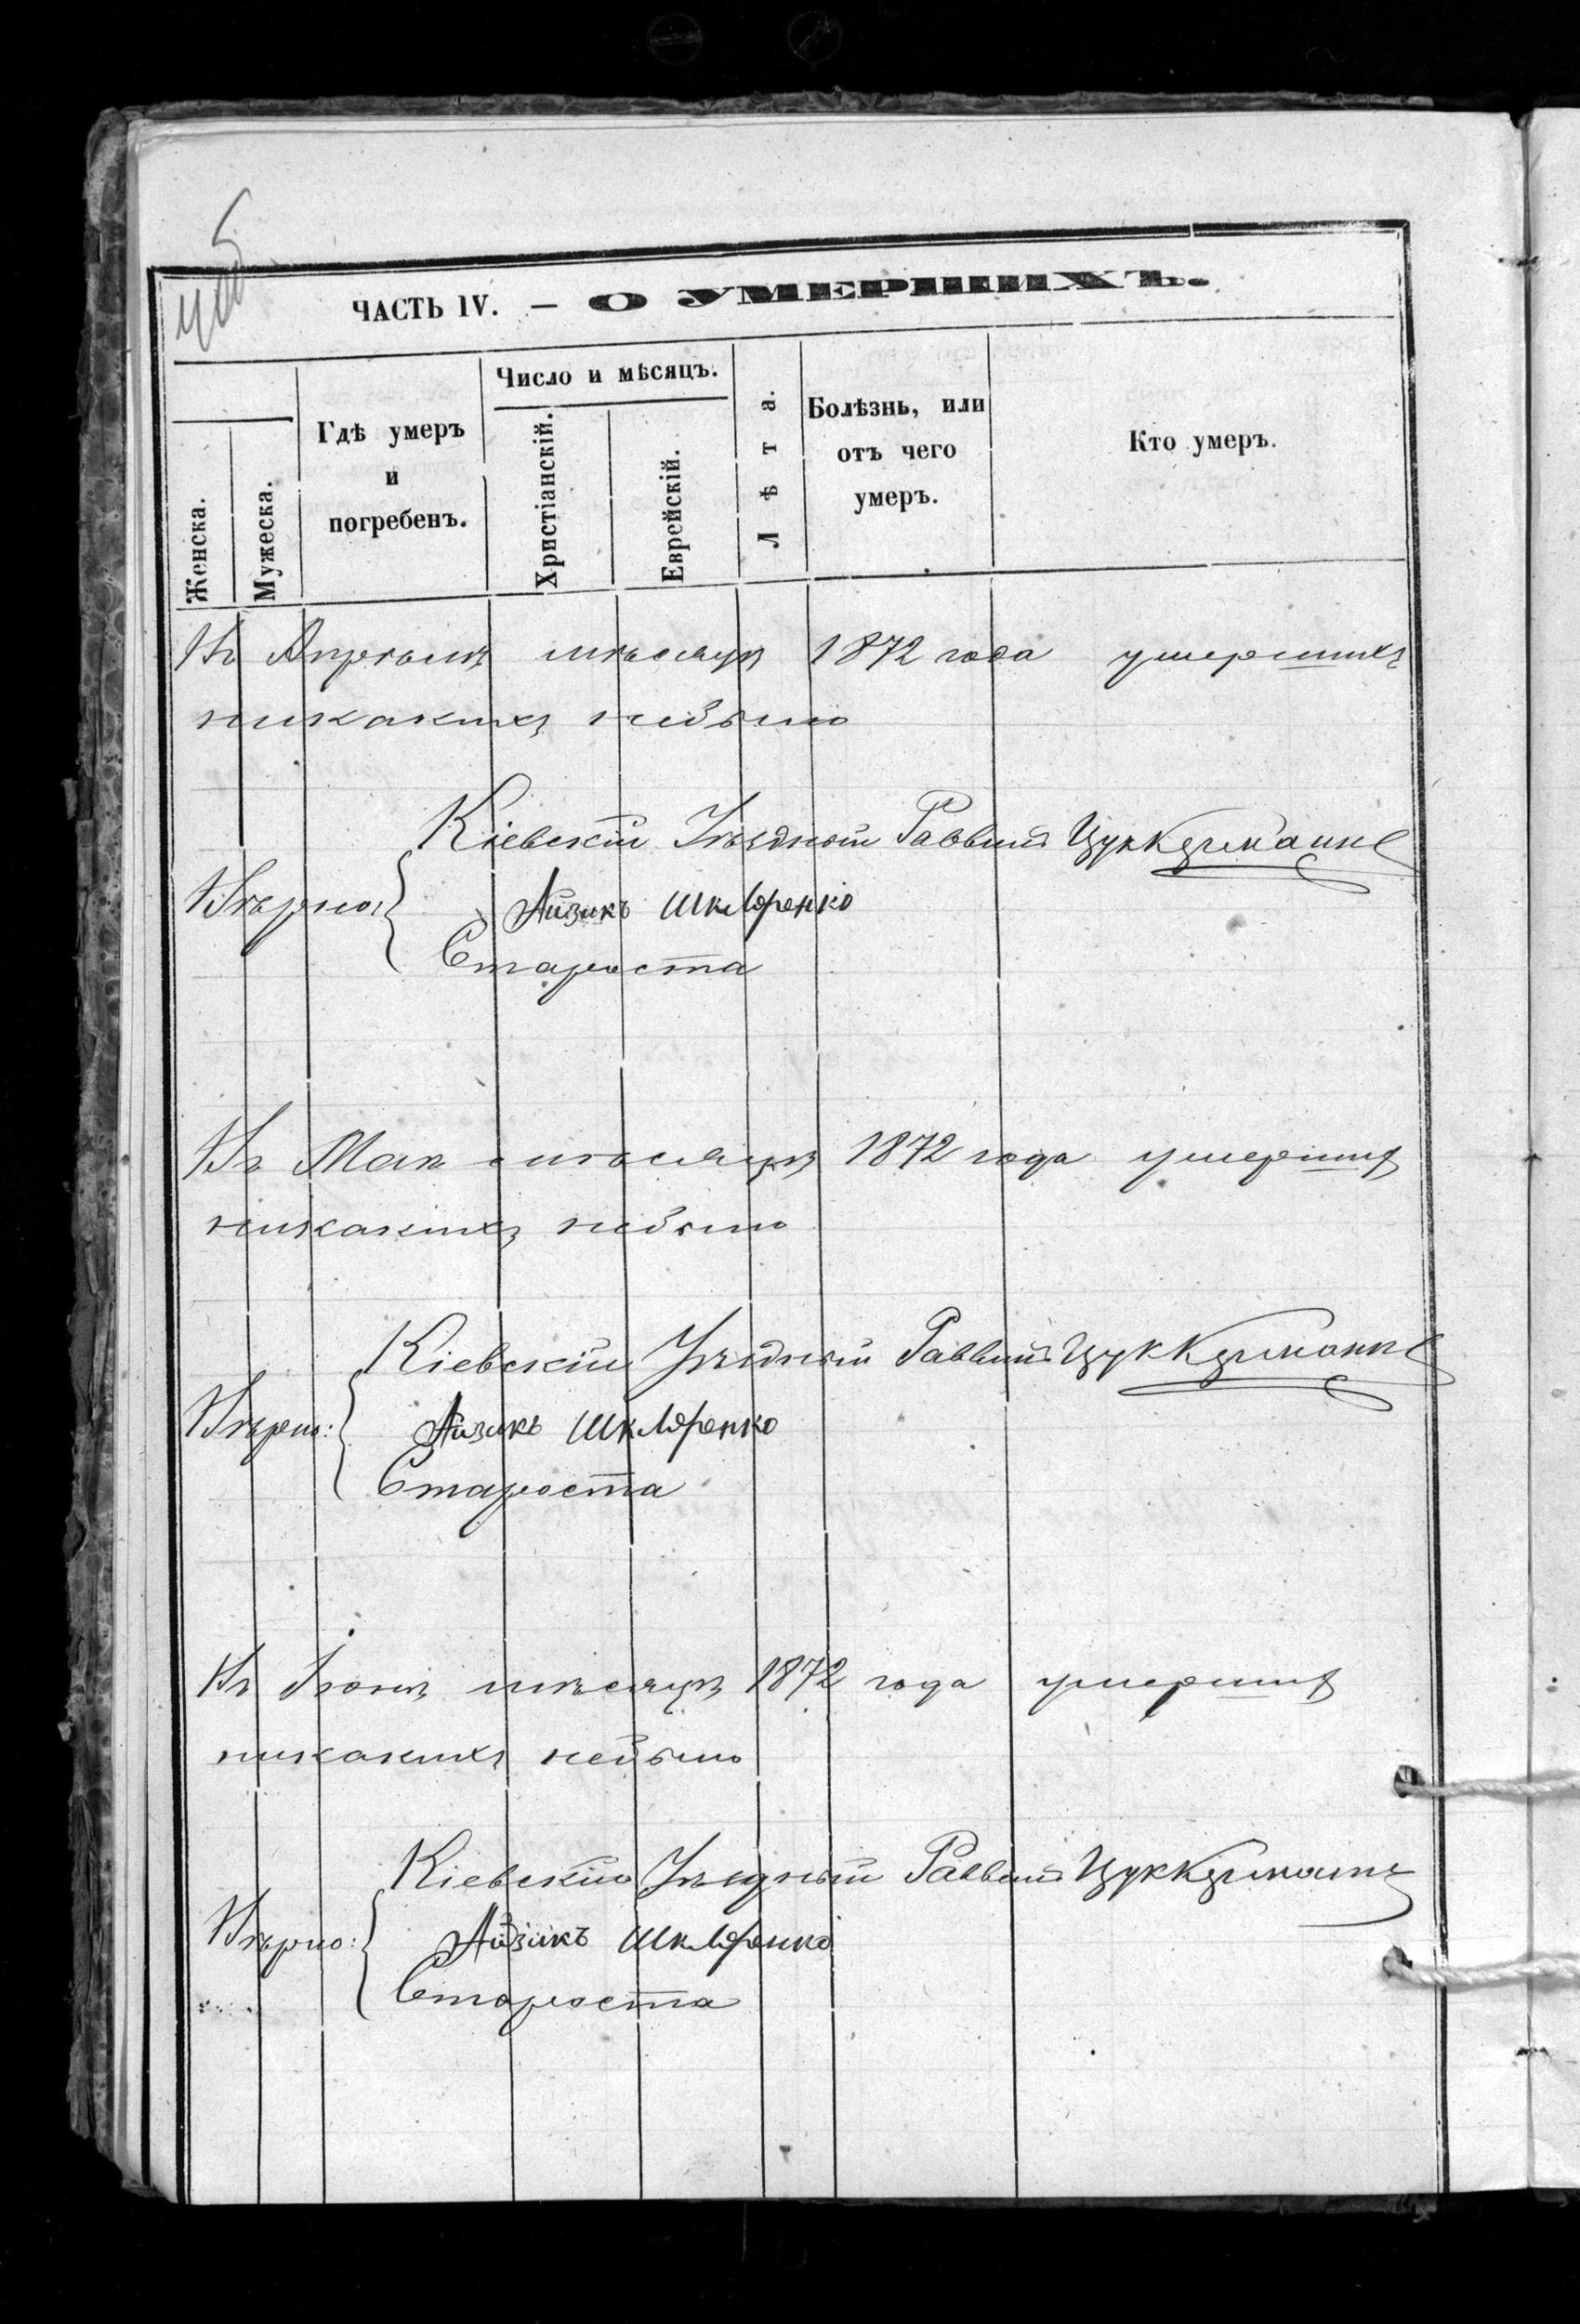 ЧАСТЬ IV. — О УМЕРШИХЪ.
Женска.
Мужеска.
Гдѣ умеръ
и
погребенъ.
Число и мѣсяцъ.
Христіанскій.
Еврейскій.
Лѣта.
Болѣзнь, или
отъ чего
умеръ.
Кто умеръ.
Въ Апрѣлѣ мѣсяцѣ 1872 года умершихъ
никакихъ небыло
Кіевскій Уѣздный Раввинъ Цуккерманъ
Вѣрно:
Айзикъ Шкляренко
Староста
Въ Маѣ мѣсяцѣ 1872 года умершихъ
никакихъ небыло
Кіевскій Уѣздный Раввинъ Цуккерманъ
Вѣрно:
Айзикъ Шкляренко
Староста
Въ Іюнѣ мѣсяцѣ 1872 года умершихъ
никакихъ небыло
Кіевскій Уѣздный Раввинъ Цуккерманъ
Вѣрно:
Айзикъ Шкляренко
Староста